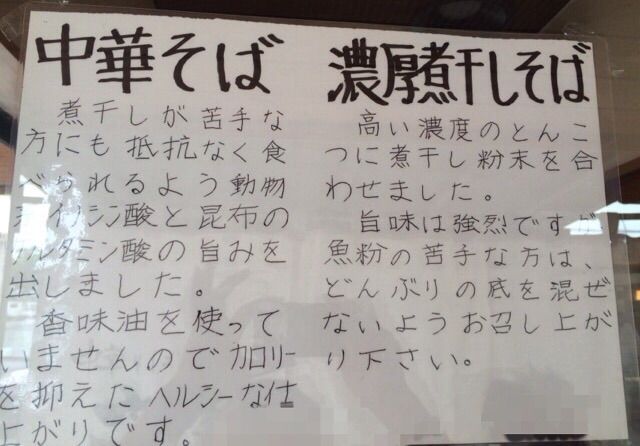 中華そば
煮干しが苦手な
方にも抵抗なく食
べられるよう動物
系イノシン酸と昆布の
グルタミン酸の旨みを
出しました。
香味油を使って
いませんのでカロリー
を抑えたヘルシーな仕
上がりです。
濃厚煮干しそば
高い濃度のとんこ
つに煮干し粉末を合
わせました。
旨味は強烈ですが
魚粉の苦手な方は、
どんぶりの底を混ぜ
ないようお召し上が
り下さい。